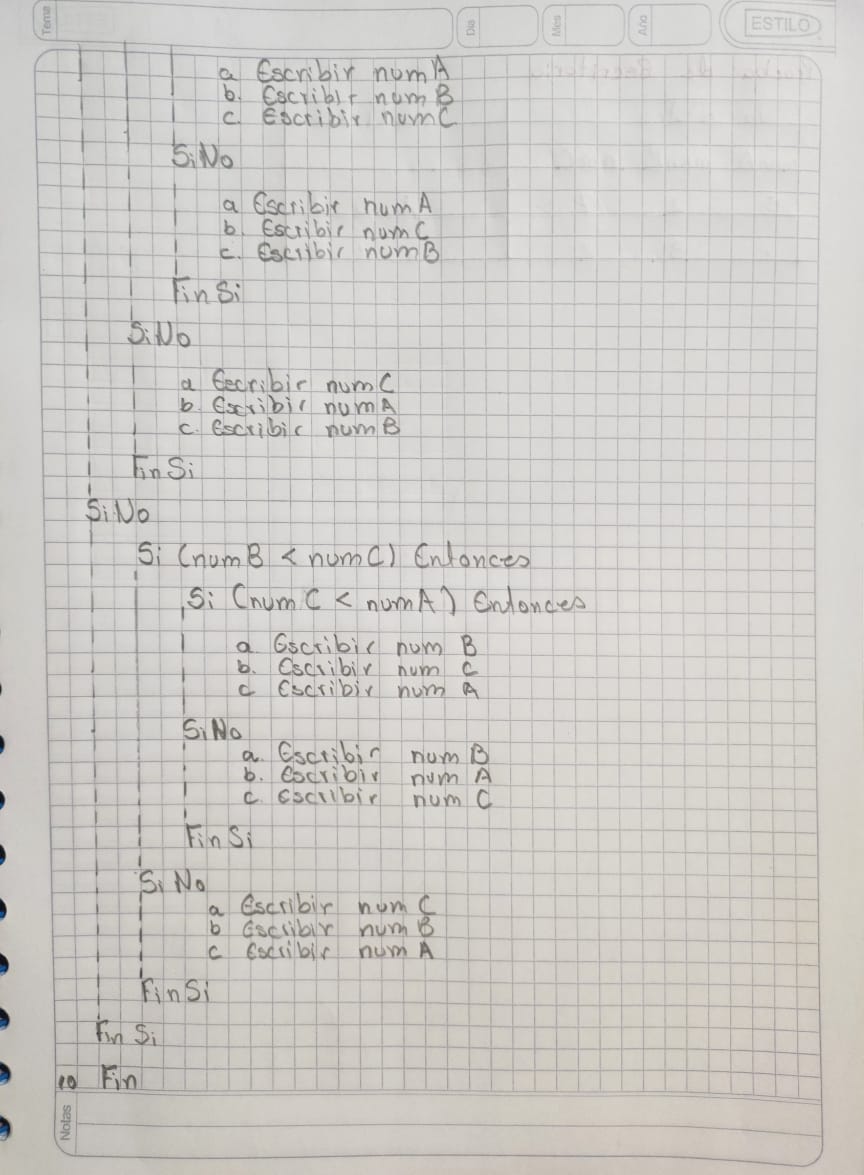 Tema
Dia
Mes
Año
ESTILO
a Escribir numA
b. Escribir numB
c. Escribir numC
SiNo
a Escribir numA
b. Escribir numC
c. Escribir numB
FinSi
SiNo
a Escribir numC
b. Escribir numA
c. Escribir numB
FinSi
SiNo
Si (numB < numC) Entonces
Si (numC < numA) Entonces
a. Escribir num B
b. Escribir num C
c Escribir num A
SiNo
a. Escribir num B
b. Escribir num A
c. Escribir num C
FinSi
Si No
a Escribir num C
b Escribir num B
c Escribir num A
FinSi
Fin Si
10 Fin
Notas